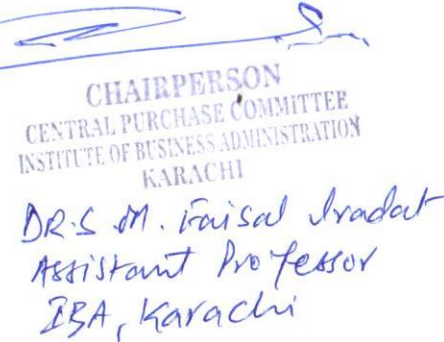 CHAIRPERSON
CENTRAL PURCHASE COMMITTEE
INSTITUTE OF BUSINESS ADMINISTRATION
KARACHI
DR.S.M. Faisal Iradat
Assistant Professor
IBA, Karachi